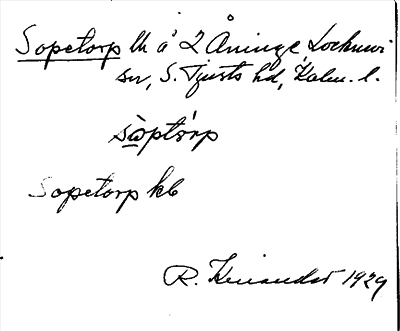 Sopetorp lh å 2 Åninge, Locknevi
sn, S. Tjusts hd, Kalm. l.
sὼptórp
Sopetorp kb
R. 1929